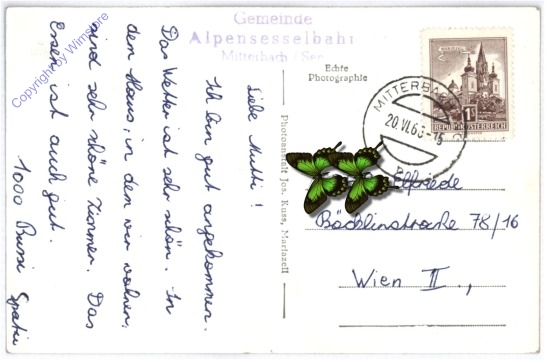 Gemeinde
Alpensesselbahn
Mitterbach / See
Echte
Photographie
Copyright by Wimstore
Liebe Mutti!
Ich bin gut angekommen.
Das Wetter ist sehr schön. In
dem Haus, in dem wir wohnen,
sind sehr schöne Zimmer. Das
Essen ist auch gut.
1000 Bussi
Photoanstalt Jos. Kuss, Mariazell
MITTERBACH
20.VI.63-15
REPUBLIK ÖSTERREICH
Elfriede
Böcklinstrasse 78/16
Wien II.,